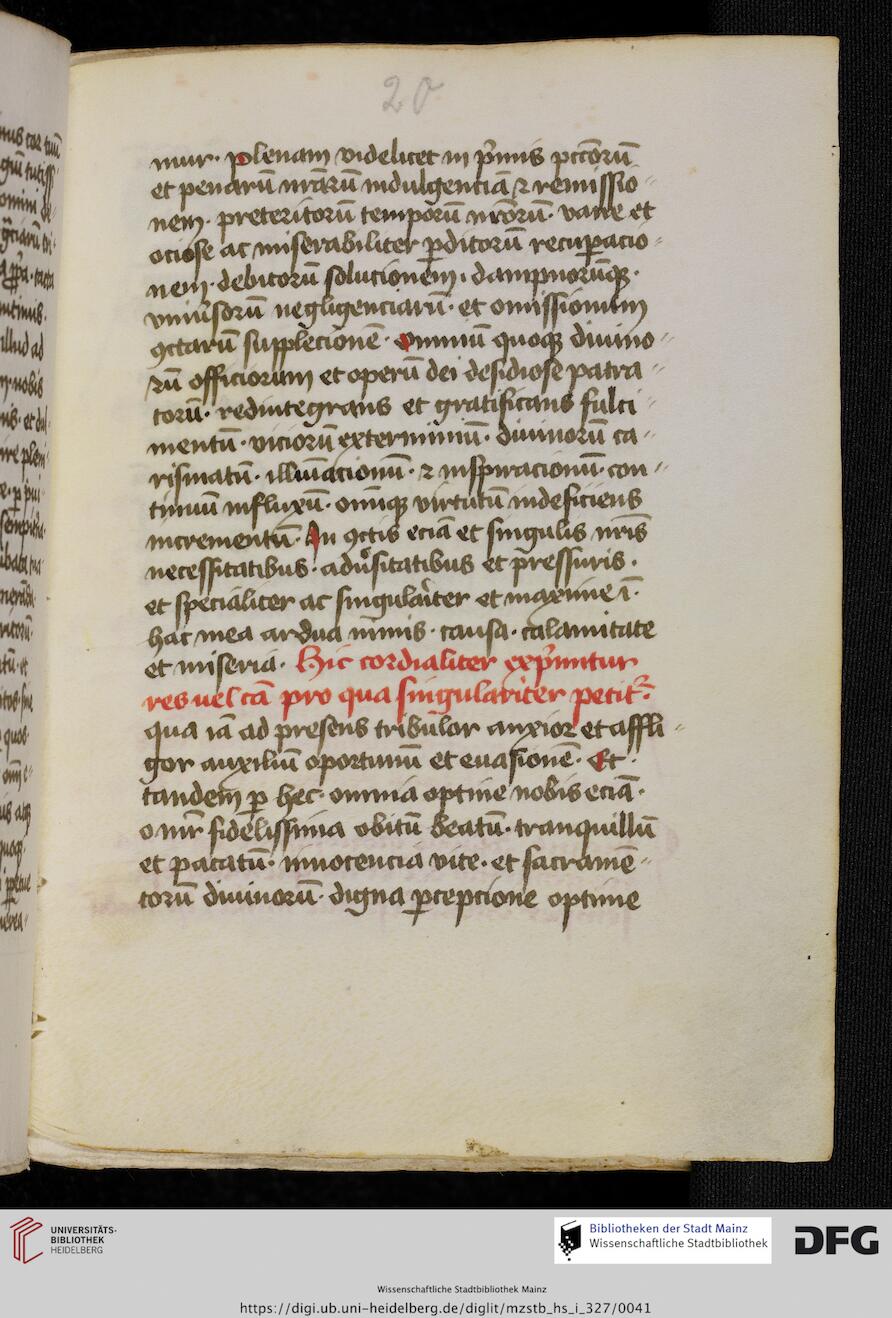 20
mur· plenam videlicet in p̓mis pccōrū
et penarū nrārū indulgenciā ⁊ remissio⸗
nem· preteritorū temporū nrōrū· vane et
ociose ac miserabiliter ꝑditorū recuꝑacio⸗
nem· debitorū solucionem· dampnorūqꝫ·
vniu̓sorū negligenciarū· et omissionum
ꝯctarū supplecionē· omniū quoqꝫ diuino⸗
rū officiorum et operū dei desidiose patra⸗
torū· redintegrans et gratificans fulci⸗
mentū· viciorū exterminiū· diuinorū ca⸗
rismatū· illūacionū· ⁊ inspiracionū· con⸗
tinuū influxū· omīqꝫ virtutū indeficiens
incrementū· In ꝯctis eciā et singulis nrīs
necessitatibus· adu̓sitatibus et p̄ressuris·
et specialiter ac singula̓iter et maxime ī·
hac mea ardua nimis· causa· calamitate
et miseria· Hic cordialiter exp̓muntur
res uel cā pro qua singulariter petit᷑·
qua iā ad presens tribulor anxior et affli⸗
gor auxiliū oportunū et euasionē· Et·
tandem ꝑ hec· omnia optine nobis eciā·
o mr̄ fidelissima obitū beatū· tranquillū
et pacatū· innocencia vite· et sacramē⸗
torū diuinorū· digna ꝑcepcione optime
UNIVERSITÄTS-
BIBLIOTHEK
HEIDELBERG
Bibliotheken der Stadt Mainz
Wissenschaftliche Stadtbibliothek
DFG
Wissenschaftliche Stadtbibliothek Mainz
https://digi.ub.uni-heidelberg.de/diglit/mzstb_hs_i_327/0041